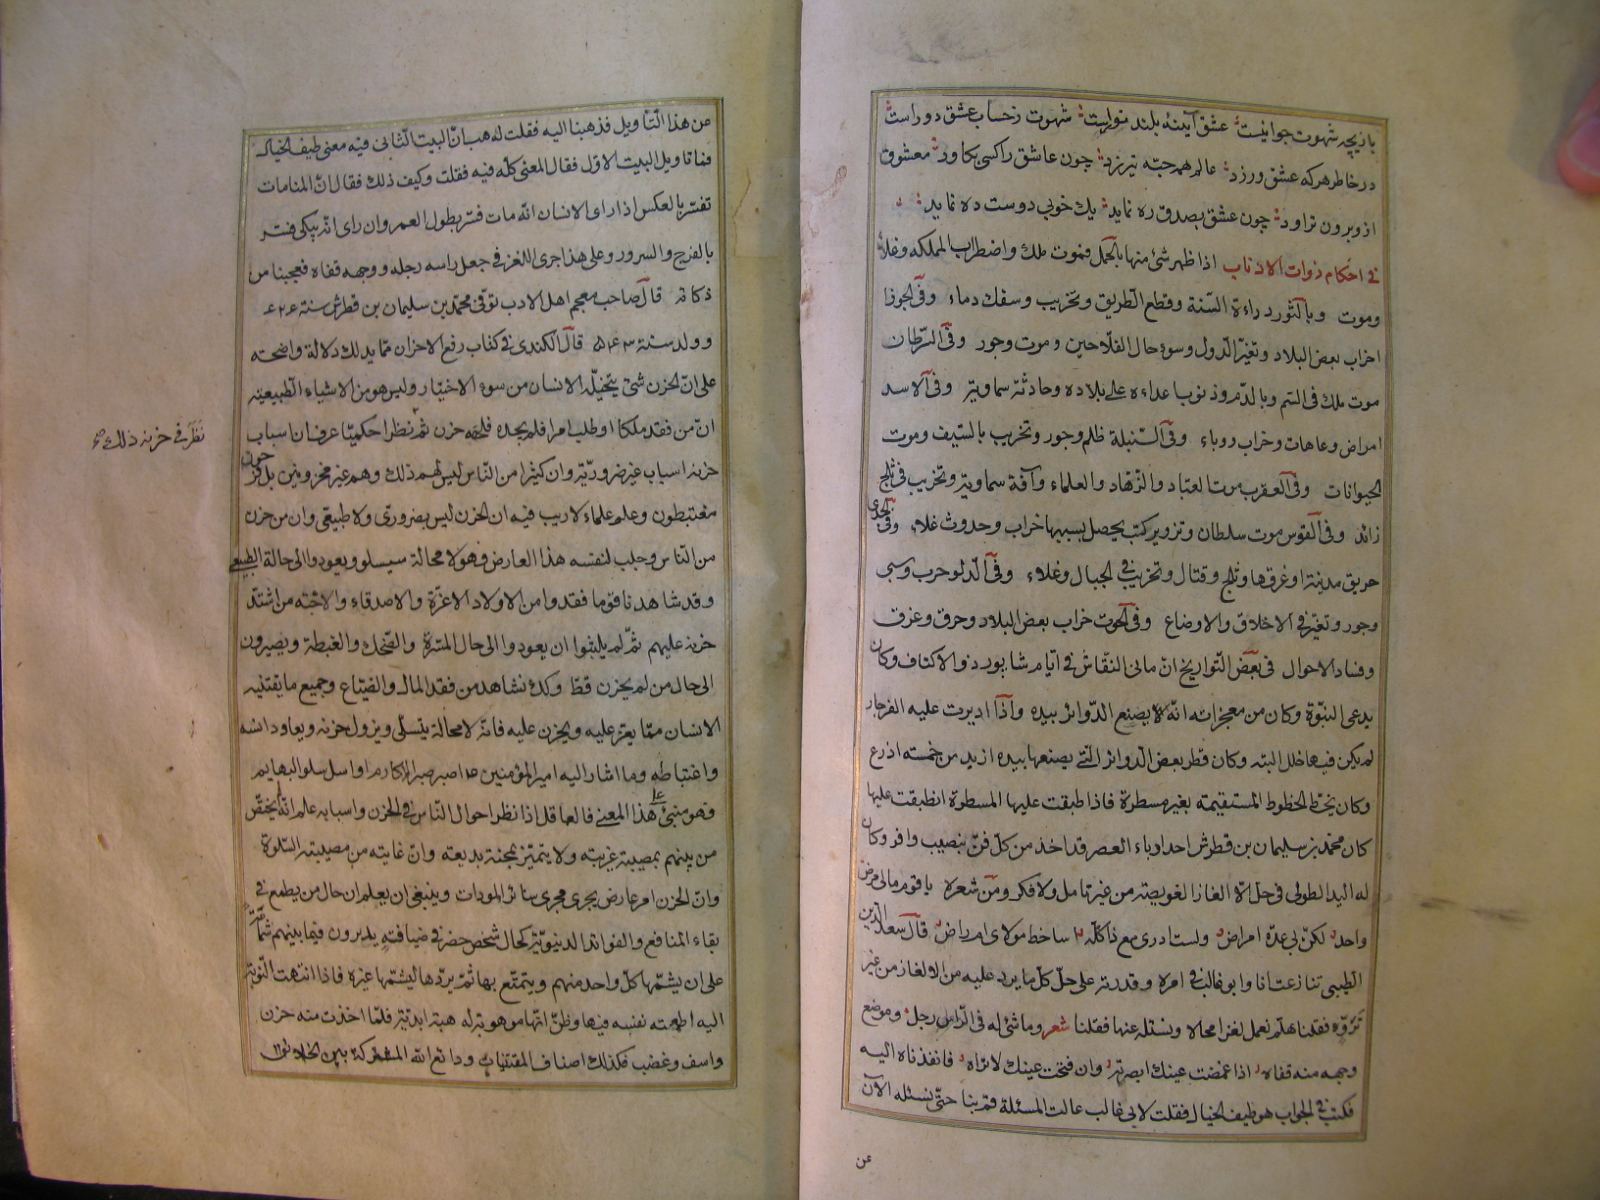 بازیچه شهوت جوانیست عشق آینهٔ بلند نوراست شهوت ز حساب عشق دوراست
در خاطر هرکه عشق ورزد عالم همه حبّه نیرزد چون عاشق را کسی بکاود معشوق
ازو برون تراود چون عشق بصدق ره نماید یک خوبی دوست ده نماید
فی احکام ذوات الاذناب اذا ظهر شئ منها بالحمل فموت ملك واضطراب المملکه وغلاء
وموت وبالثور رداءة السّنة وقطع الطریق وتخریب وسفك دماء وفی الجوزا
اخراب بعض البلاد وتغیّر الدول وسوء حال الفلاحین وموت وجور وفی السّرطان
موت ملك فی السّم وبالدّم وذنوب اعداءه علی بلاده وحادثة سماویة وفی الاسد
امراض وعاهات وخراب ووباء وفی السّنبلة ظلم وجور وتخریب بالسّیف وموت
الحیوانات وفی العقرب موت العبّاد والزّهاد والعلماء وآفة سماویة وتخریب فی ثلج
زائد وفی القوس موت سلطان وتزویر کتب یحصل بسببها خراب وحدوث غلاء وفی الجدی
حریق مدینة او غرقها وثلج وقتال وتخریب فی الجبال وغلاء وفی الدّلو حرب وسبی
وجور وتغیّر فی الاخلاق والاوضاع وفی الحوت خراب بعض البلاد وحرق وغرق
وفساد الاحوال فی بعض التّواریخ انّ مانی النقّاش فی ایّام شابور ذو الاکتاف وکان
یدعی النبّوة وکان من معجزاته انّه یصنع الدّوائر بیده واذا ادیرت علیه الفرجار
لم یکن فیها خلل البتّه وکان قطر بعض الدّوائر الّتی یصنعها بیده ازید من خمسة اذرع
وکان یخطّ الخطوط المستقیمة بغیر مسطرة فاذا طبقت علیها المسطرة انطبقت علیها
کان محمّد بن سلیمان بن قطرش احد ادباء العصر قد اخذ من کلّ فنّ بنصیب وافر وکان
له الید الطولی فی حلّ الالغاز الغویصة من غیر تامل ولا فکر ومن شعره یا قوم مالی مرض
واحد لکنّ بی عدّة امراض ولست ادری مع ذا کلّه ساخط مولای ام راض قال سعد الدّین
الطیبی تنازعت انا وابو غالب فی امره وقدرته علی حلّ کلّ ما یرد علیه من الالغاز من غیر
تروّه فقلنا هلمّ نعمل لغزا محالا ونسئله عنها فقلنا شعر وما شئ له فی الرّاس رجل وموضع
وجهه منه قفاه اذا غمضت عینك ابصرته وان فتحت عینك لا تراه فانفذناه الیه
فکتب فی الجواب هو طیف الخیال فقلت لابی غالب عالت المسئلة قم بنا حتّی نسئله الآن
عن
عن هذا التّأویل فذهبنا الیه فقلت له هب انّ البیت الثّانی فیه معنی طیف الخیال
فما تاویل البیت الاوّل فقال المعنی کلّه فیه فقلت وکیف ذلك فقال انّ المنامات
تفسّر بالعکس اذا رای الانسان انّه مات فسّر بطول العمر وان رای انّه یبکی فسّر
بالفرح والسرور وعلی هذا جری اللغز فی جعل راسه رجله ووجهه قفاه فعجبنا من
ذکائه قال صاحب معجم اهل الادب توفّی محمّد بن سلیمان بن قطرش سنة
وولد سنة قال الکندی فی کتاب رفع الاحزان ممّا یدلك دلالة واضحة
علی انّ الحزن شئ یتخیّله الانسان من سوء الاختیار ولیس هو من الاشیاء الطّبیعیّه
انّ من فقد ملکا او طلب امرا فلم یجده فلحقه حزن ثمّ نظرا حکمیّا عرف ان اسباب
نظر فی حزنه ذلك
حزنه اسباب غیر ضروریّة وان کثیرا من النّاس لیس لهم ذلك وهم غیر محزونین بل فرحون
مغتبطون وعلم علما لا ریب فیه ان الحزن لیس بضروری ولا طبیعی وان من حزن
من النّاس وجلب لنفسه هذا العارض فهو لا محالة سیسلو ویعود الی حالة الطبیعی
وقد شاهدنا قوما فقدوا من الاولاد الاعزّة والاصدقاء والاحبّه من اشتدّ
حزنه علیهم ثمّ لم یلبثوا ان یعودوا الی حال المسرّة والضّحك والغبطة ویصیرون
الی حال من لم یحزن قطّ وکذلك نشاهد من فقد المال والضیاع وجمیع ما یقتنیه
الانسان ممّا یعزّ علیه ویحزن علیه فانّه لا محالة یتسلّی ویزول حزنه ویعاود انسه
واغتباطه وما اشار الیه امیر المؤمنین اصبر صبر الاکارم او اسل سلو البهایم
وهو مبنی علی هذا المعنی فالعاقل اذا نظر احوال النّاس فی الحزن واسبابه علم انّه لم یختصّ
من بینهم بمصیبة غریبة ولا یتمیّز بمحنة بدیعة وانّ غایته من مصیبته السّلوة
وانّ الحزن امر عارض یجری مجری سائر وینبغی ان یعلم ان حال من یطمع فی
بقاء المنافع والفوائد الدنیویّة کحال شخص حضر فی ضیافة یدیرون فیما بینهم شمّامة
علی ان یشمّها کلّ واحد منهم ویتمتّع بها ثمّ یردّها لیشمّها غیره فاذا انتهت النّوبة
الیه اطمعته نفسه فیها وظنّ انّها موهوبة له هبة ابدیّة فلمّا اخذت منه حزن
واسف وغضب فکذلك اصناف المقتنیات ودائع الله المشترکة بین الخلائق